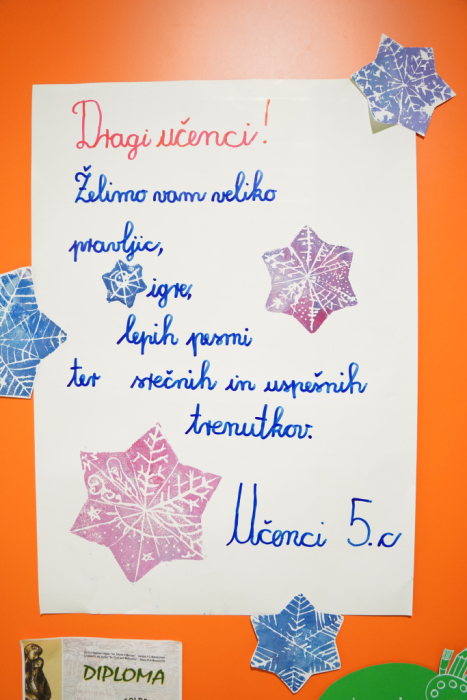 Dragi učenci!
Želimo vam veliko
pravljic,
igre,
lepih pesmi
ter srečnih in uspešnih
trenutkov.
Učenci 5.c
DIPLOMA